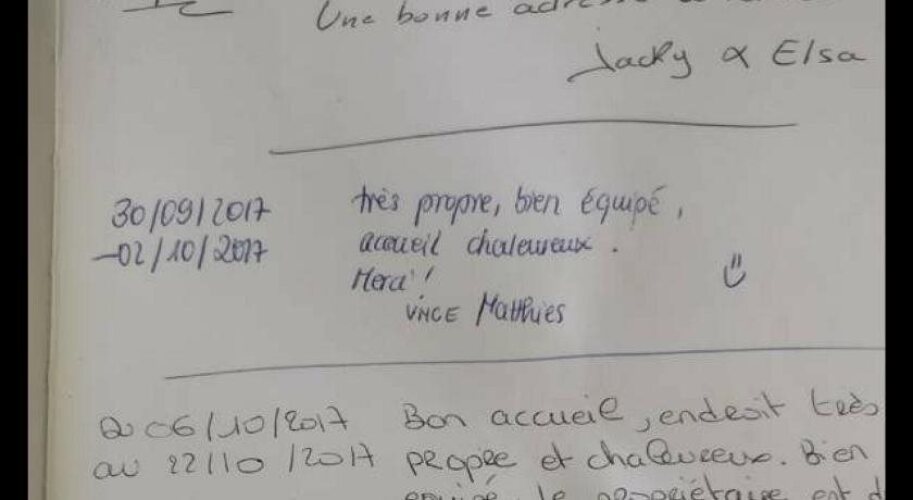 Une bonne adresse
Jacky & Elsa
30/09/2017 très propre, bien équipé,
-02/10/2017 accueil chaleureux.
Merci!
VINCE Matthies
Du 06/10/2017 Bon accueil, endroit très
au 22/10/2017 propre et chaleureux. Bien
équipé, le propriétaire est